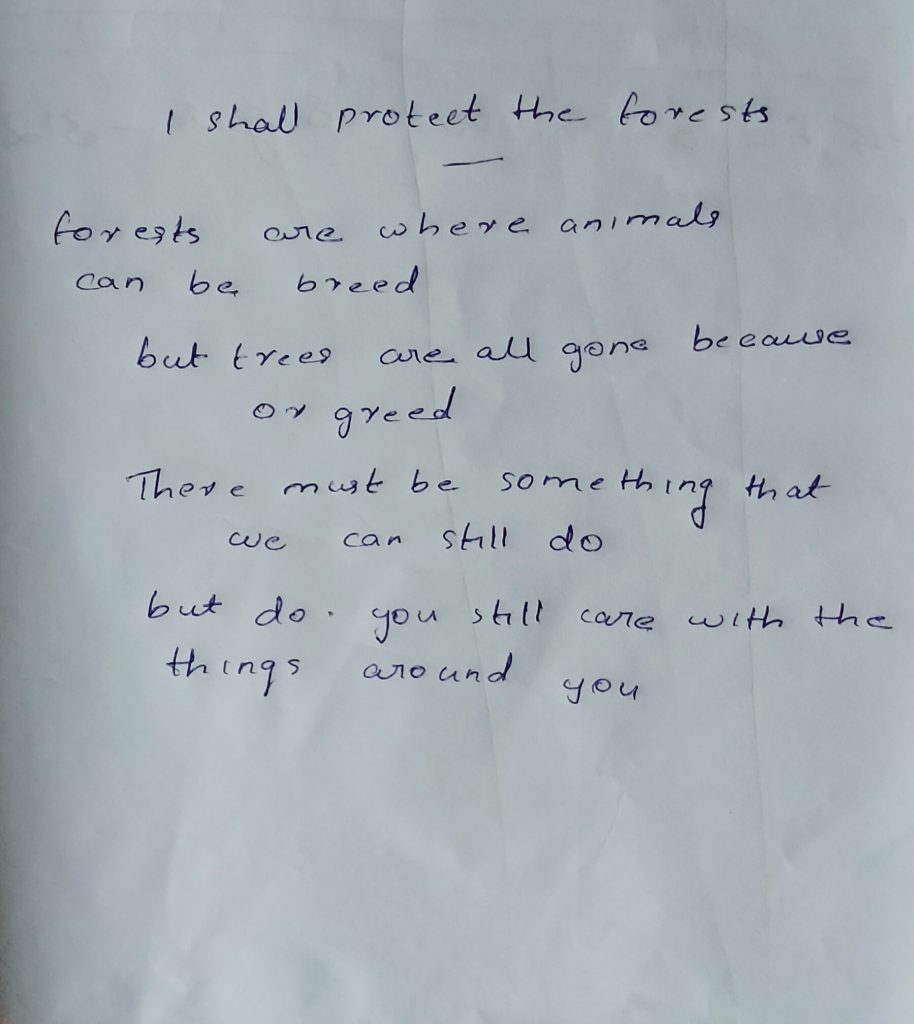 I shall protect the forests
forests are where animals
can be breed
but trees are all gone because
or greed
There must be something that
we can still do
but do. you still care with the
things around you